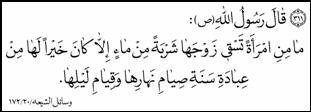 ﴿٣١١﴾ قَالَ رَسُولُ اللهِ (ص):
مٰا مِنِ امْرَأَةٍ تَسْقي زَوْجَهٰا شَرْبَةً مِنْ مٰاءٍ إِلاّٰ كٰانَ خَيْراً لَهٰا مِنْ
عِبٰادَةِ سَنَةٍ صِيٰامِ نَهٰارِهٰا وَقِيٰامِ لَيْلِهٰا.
وسائل الشیعه/٢٠/١٧٢